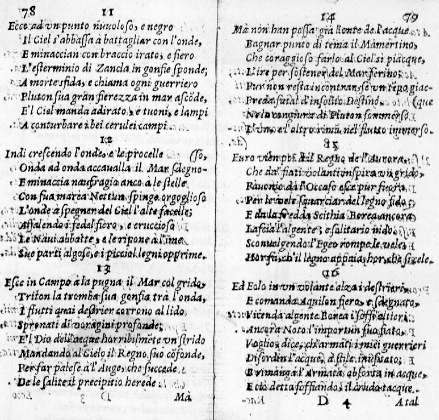 78
11
Ecco ad un punto nuvoloso, e negro
Il Ciel s'abbassa à battagliar con l'onde,
E minaccian con braccio irato, e fiero
L'esterminio di Zancla in gonfie sponde;
A morte sfida, e chiama ogni guerriero
Pluton sua gran fierezza in mar ascõde,
E'l Ciel manda adirato, e tuoni, e lampi
A conturbare i bei cerulei campi.
12
Indi crescendo l'onde, e le procelle (so,
Onda ad onda accavalla il Mar sdegno-
E minaccia naufragio anco à le stelle
Con sua marea Nettun spinge orgoglioso
L'onde à spegner del Ciel l'alte facelle;
Assalendo i fedel fiero, e cruccioso
Le Navi abbatte, e le ripone à l'ime
Sue parti algose, e i piccol legni opprime.
13
Esce in Campo à la pugna il Mar col grido,
Triton la tromba sua gonfia trà l'onda,
I flutti quai destrier corrono al lido
Spronati di voragini profonde;
E'l Dio dell'acque horribilmẽte un strido
Mandando al Cielo il Regno suo cõfonde,
Per far palese à l'Auge, che succede
De le saliti precipitio herede
Mà
14 79
Mà non han possa già l'onte de l'acque
Bagnar punto di tema il Mamertino,
Che coraggioso farlo al Ciel si piacque,
L'ire per sostener del
Pur non resta
Preda fatal d'insolito Destino, (que
Pluton sommerso
nel flutto immerso.
Euro vien poi il Regno de l'Aurora,
Che da' fiati volanti spira un grido,
l'Occaso esce pur fuora
Per le vele squarciar del legno fido;
E da la fredda Scithia Borea ancora
Lascia l'algente, e solitario nido
Sconvolgendo l'Egeo rompe le vele
Hor fà, ch'il legno appaia, hor che si cele.
Ed Eolo in un volante alza i destrieri
E comanda Aquilon fiero, e sdegnato
Vicenda algente Borea i soffi alteri
Ancora Noto l'importun suo fiato,
Voglio, dice, ch'armati i miei guerrieri
Disordin l'acque, à stile inusitato;
E rimanga l'Armata absorta in acque,
E ciò detta soffiando, il crudo tacque.
D 4 A tal